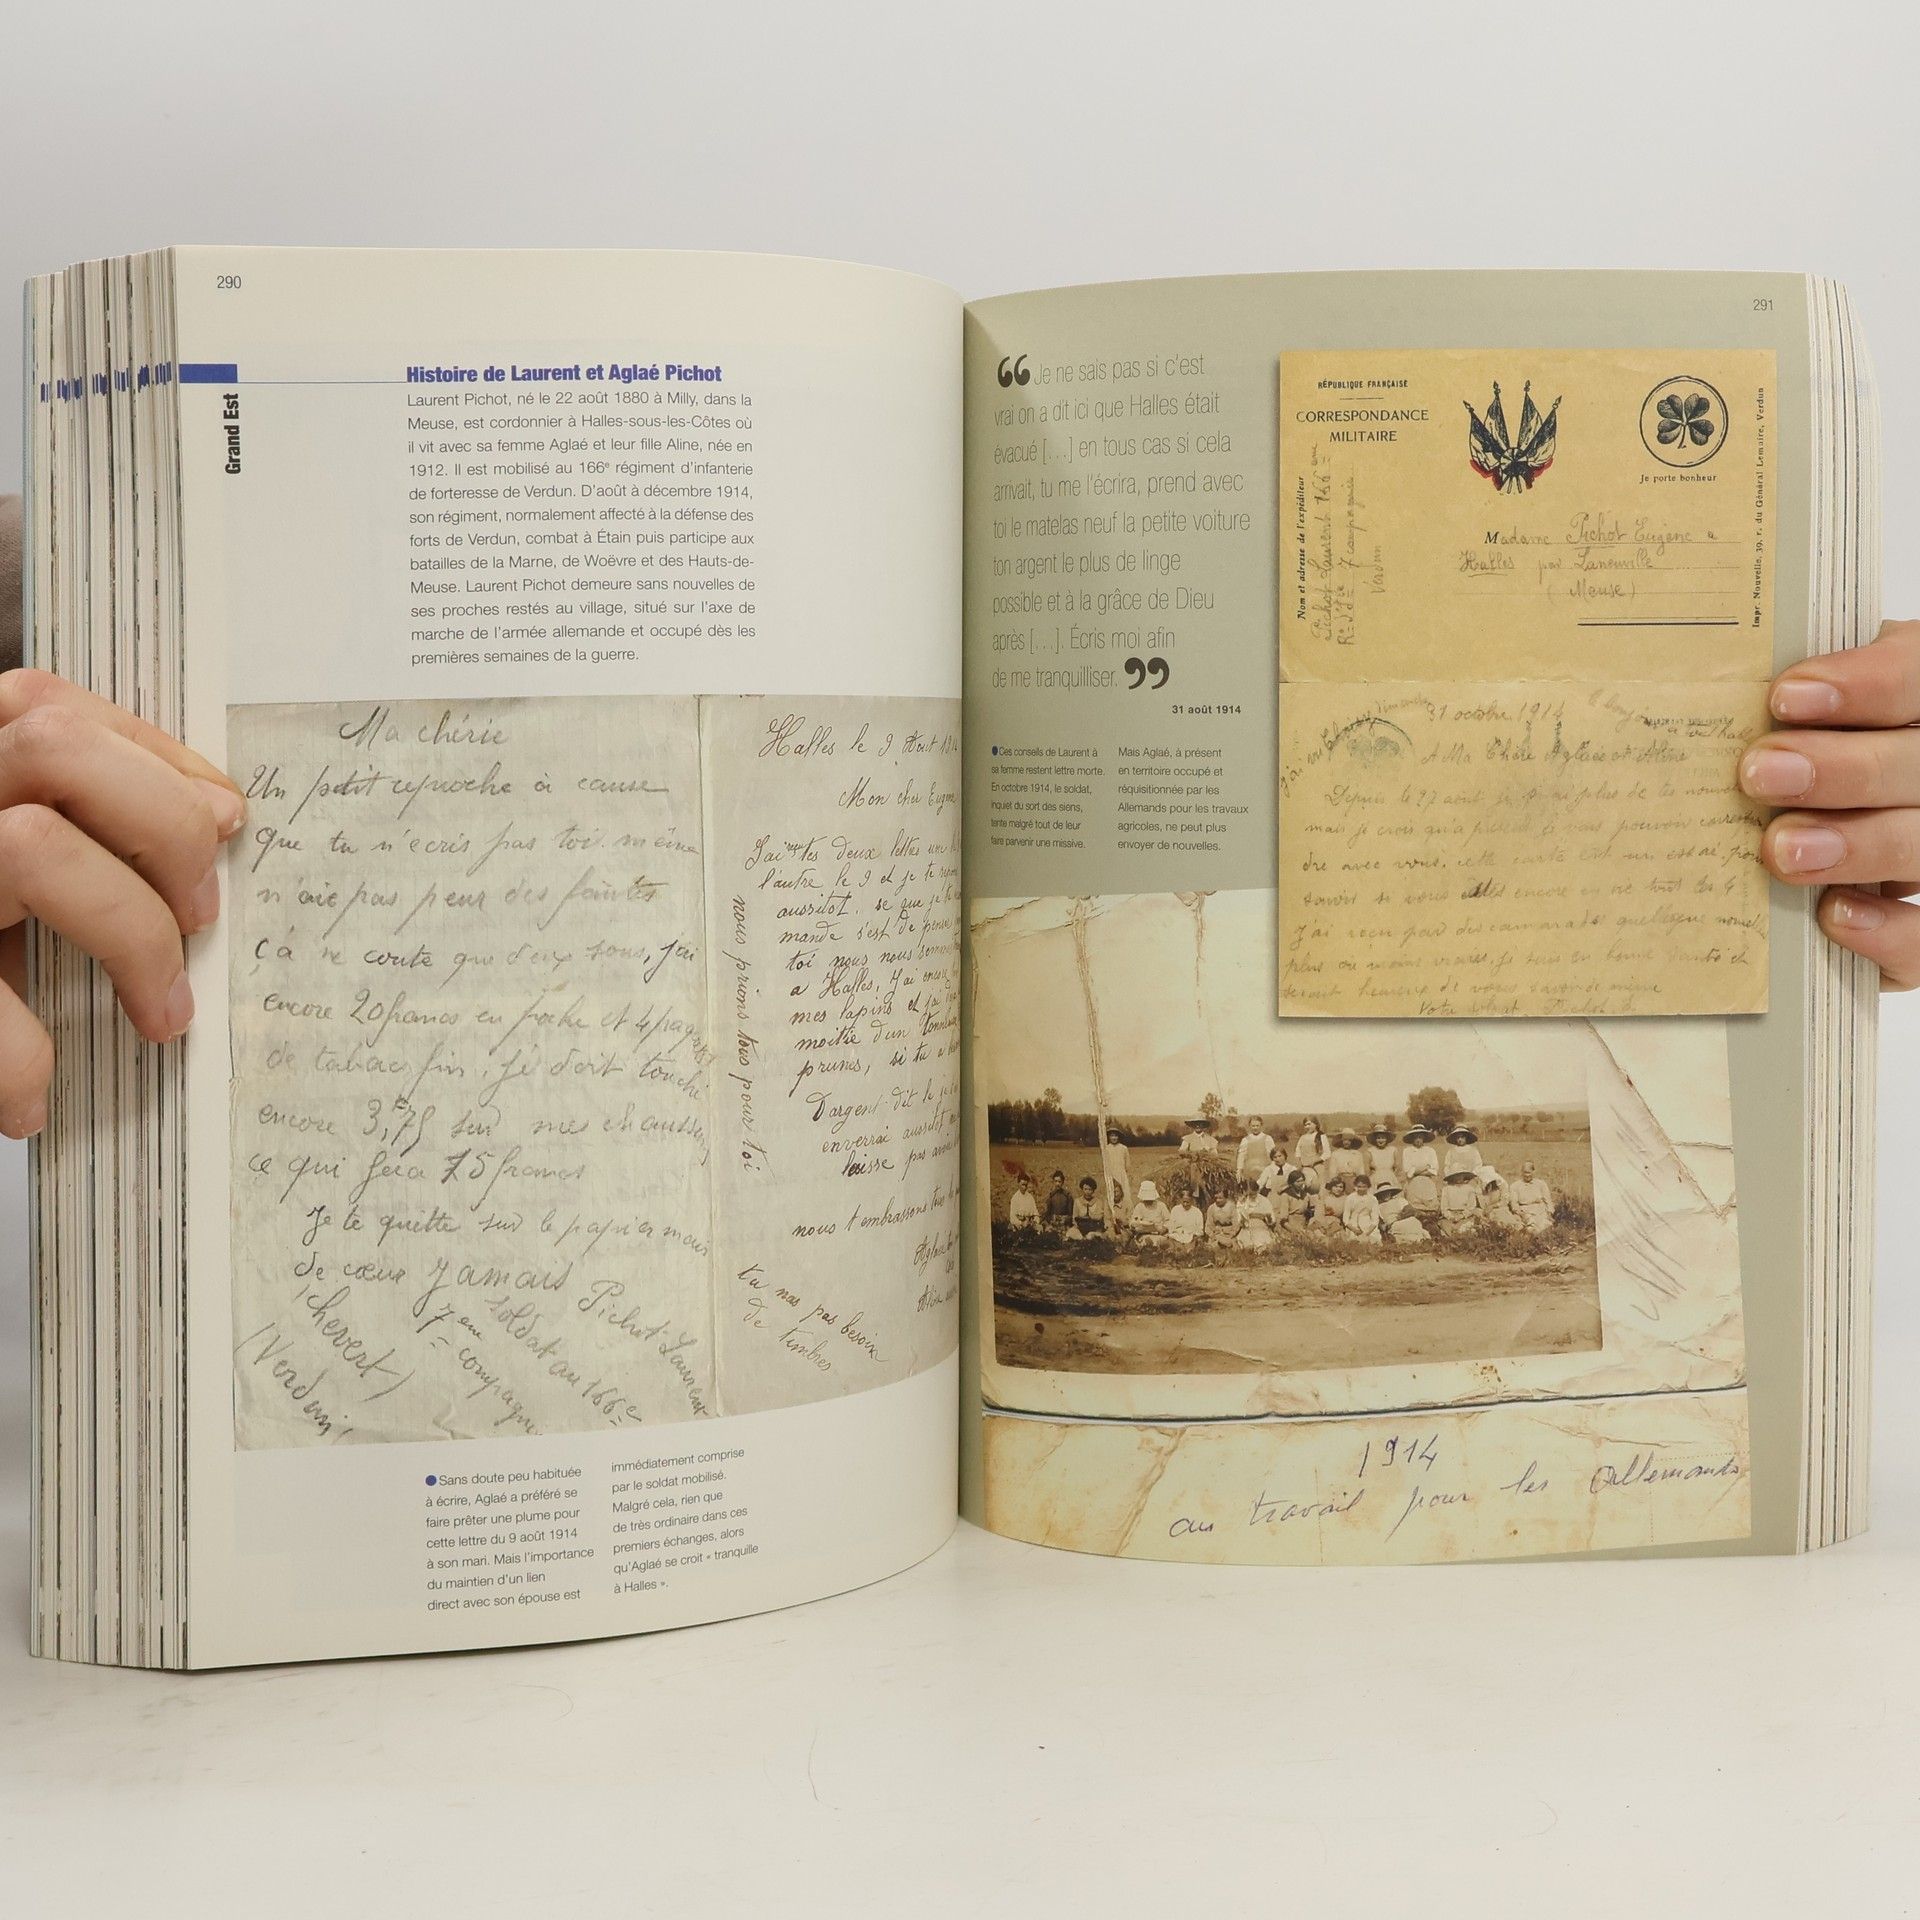 290
Grand Est
Histoire de Laurent et Aglaé Pichot
Laurent Pichot, né le 22 août 1880 à Milly, dans la
Meuse, est cordonnier à Halles-sous-les-Côtes où
il vit avec sa femme Aglaé et leur fille Aline, née en
1912. Il est mobilisé au 166e régiment d'infanterie
de forteresse de Verdun. D'août à décembre 1914,
son régiment, normalement affecté à la défense des
forts de Verdun, combat à Étain puis participe aux
batailles de la Marne, de Woëvre et des Hauts-de-
Meuse. Laurent Pichot demeure sans nouvelles de
ses proches restés au village, situé sur l'axe de
marche de l'armée allemande et occupé dès les
premières semaines de la guerre.
Ma chérie
Un petit reproche à cause
que tu n'écris pas toi même
n'aie pas peur des fautes
ça ne coute que deux sous, j'ai
encore 20 francs en poche et 4 paquets
de tabac fin. Je doit touché
encore 3,75 sur mes chaussures
ce qui fera 75 francs
Je te quitte sur le papier mais
de cœur Jamais
Pichot Laurent
soldat au 166e
7eme compagnie
(Chevert)
(Verdun)
Halles le 9 Aout
Mon cher Eugene
J'ai tes deux lettres
l'autre le 9 et je te
aussitot. se que je
mande s'est de
toi nous nous sommes
a Halles, J'ai encore
mes lapins et j'ai
moitié d'un tonneau
prunes, si tu
D'argent dit le
enverrai aussitot
laisse pas
nous t'embrassons
nous prions tous pour toi
tu nas pas besoin
de timbres
●Sans doute peu habituée
à écrire, Aglaé a préféré se
faire prêter une plume pour
cette lettre du 9 août 1914
à son mari. Mais l'importance
du maintien d'un lien
direct avec son épouse est
immédiatement comprise
par le soldat mobilisé.
Malgré cela, rien que
de très ordinaire dans ces
premiers échanges, alors
qu'Aglaé se croit « tranquille
à Halles ».
291
“Je ne sais pas si c'est
vrai on a dit ici que Halles était
évacué [...] en tous cas si cela
arrivait, tu me l'écrira, prend avec
toi le matelas neuf la petite voiture
ton argent le plus de linge
possible et à la grâce de Dieu
après [...]. Écris moi afin
de me tranquilliser.”
31 août 1914
●Ces conseils de Laurent à
sa femme restent lettre morte.
En octobre 1914, le soldat,
inquiet du sort des siens,
tente malgré tout de leur
faire parvenir une missive.
Mais Aglaé, à présent
en territoire occupé et
réquisitionnée par les
Allemands pour les travaux
agricoles, ne peut plus
envoyer de nouvelles.
RÉPUBLIQUE FRANÇAISE
CORRESPONDANCE
MILITAIRE
Je porte bonheur
Nom et adresse de l'expéditeur
Pichot Laurent 166e
7 compagnie
Verdun
Madame Pichot Eugène a
Halles par Laneuville
(Meuse)
Impr. Nouvelle, 39, r. du Général Lemaire, Verdun
31 octobre 1914
A Ma Chère Aglaée et Aline
Depuis le 27 août je n'ai plus de tes nouvelles
mais je crois qu'a présent je vais pouvoir correspon
dre avec vous. cette carte est un essai pour
savoir si vous êtes encore en vie tout les 4
J'ai reçu par des camarades quelesque nouvelles
plus ou moins vraies, je suis en bonne santé et
serait heureux de vous savoir de même
1914
au travail pour les Allemands